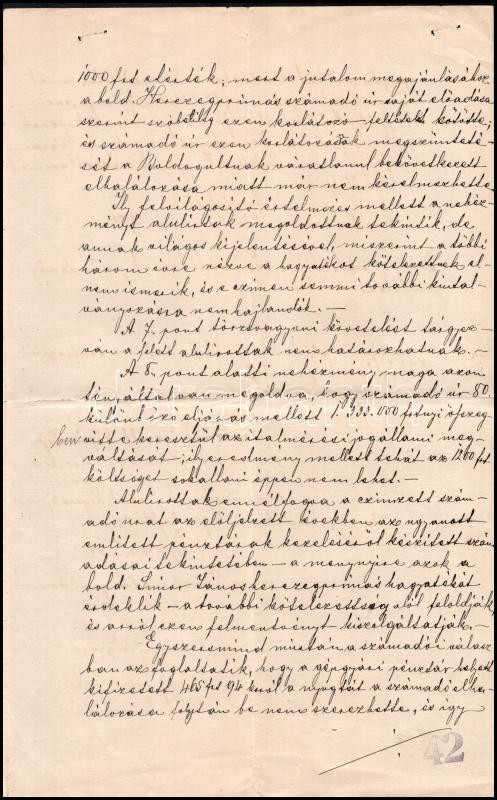 1000 frt elérték, mert a jutalom megajánlásához
a bold. Herczegprimás számadó úr saját előadása
szerint szóbelileg ezen korlátozó feltételt kötötte;
és számadó úr ezen korlátozásnak megszünteté-
sét a Boldogultnak váratlanul bekövetkezett
elhalálozása miatt már nem kérelmezhette.
Ily felvilágositó értelmezés mellett a nehéz-
ményt alulirtak megoldottnak tekintik, de
annak világos kijelentésével, miszerint a többi
három évre nézve a hagyatékot kötelezettnek el-
nem ismerik, és e czimen semmi további kiutal-
ványozásra nem hajlandók. —
A 7. pont törzsvagyoni követelést tárgyaz-
ván a felett alulirottak nem határozhatnak. —
A 8. pont alatti nehézmény maga azon-
tén, által van megoldva, hogy számadó úr 80.
különböző eljárás mellett 1.333.000 frtnyi összeg
ben vitte keresztül az italmérési jog állami meg-
váltását; ily eredmény mellett tehát az 1200 frt
költséget sokallani éppen nem lehet. —
Alulirottak ennélfogva a czimzett szám-
adó urat az elöljelzett években az ugyanott
emlitett pénztárak kezeléséről készitett szám
adásai tekintetében — a mennyire azok a
bold. Simor János herczegprimás hagyatékát
érdeklik — a további kötelezettség alól feloldják,
és arról ezen felmentvényt kiszolgáltatják. —
Egyszersmind miután a számadói válasz
ban az foglaltatik, hogy a gépgyári pénztár helyett
kifizetett 465 frt 94 krról a nyugtát a számadó elha-
lálozása folytán be nem szerezhette, és igy
42